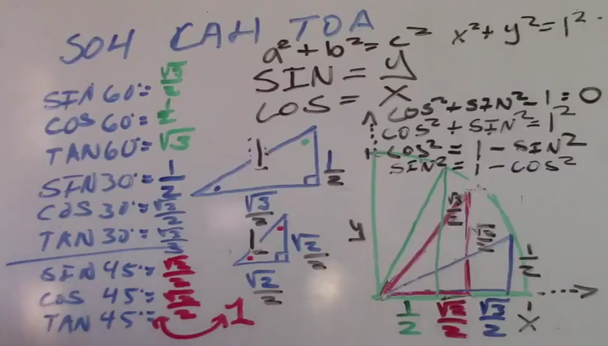 SOH CAH TOA
a² + b² = c²
x² + y² = 1²
SIN = y
COS = x
COS² + SIN² - 1 = 0
COS² + SIN² = 1²
COS² = 1 - SIN²
SIN² = 1 - COS²
SIN 60° =
COS 60° =
TAN 60° =
SIN 30° = 1/2
COS 30° =
TAN 30° =
SIN 45° =
COS 45° =
TAN 45° =
1
1
1/2
√3/2
1
√2/2
√2/2
y
√3/2
√2/2
1/2
1/2
√2/2
√3/2
1
x